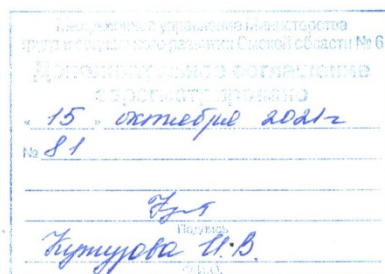 Межрайонное управление Министерства
труда и социального развития Омской области № 6
Дополнительное соглашение
зарегистрировано
« 15 » октября 2021г
№ 81
Подпись
И.В.
(Ф.И.О.)